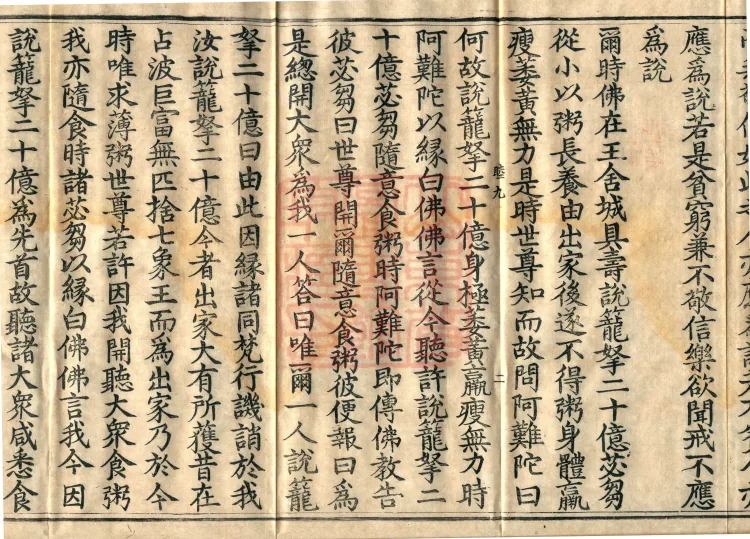 應為說若是貧窮兼不敬信樂欲聞戒不應
為說
爾時佛在王舍城具壽說籠拏二十億苾芻
從小以粥長養由出家後遂不得粥身體羸
瘦萎黃無力是時世尊知而故問阿難陀曰
睦九 二
何故說籠拏二十億身極萎黃羸瘦無力時
阿難陀以緣白佛佛言從今聽許說籠拏二
十億苾芻隨意食粥時阿難陀即傳佛教告
彼苾芻曰世尊開爾隨意食粥彼便報曰為
是緫開大衆為我一人答曰唯爾一人說籠
拏二十億曰由此因緣諸同梵行譏誚於我
汝說籠拏二十億今者出家大有所獲昔在
占波巨富無匹捨七象王而為出家乃於今
時唯求薄粥世尊若許因我開聽大衆食粥
我亦隨食時諸苾芻以緣白佛佛言我今因
說籠拏二十億為先首故聽諸大衆咸悉食